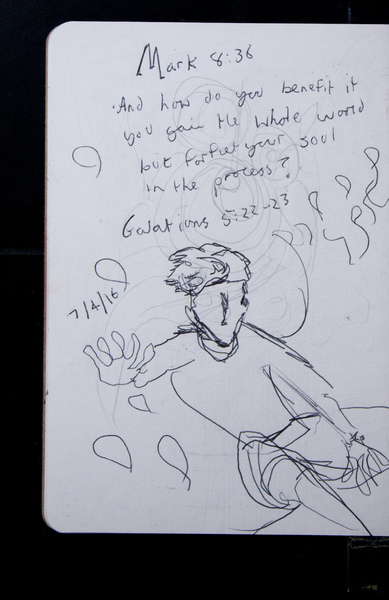 Mark 8:36
·And how do you benefit if
you gain the whole world
but forfeit your soul
in the process?
Galations 5:22-23
7/4/16